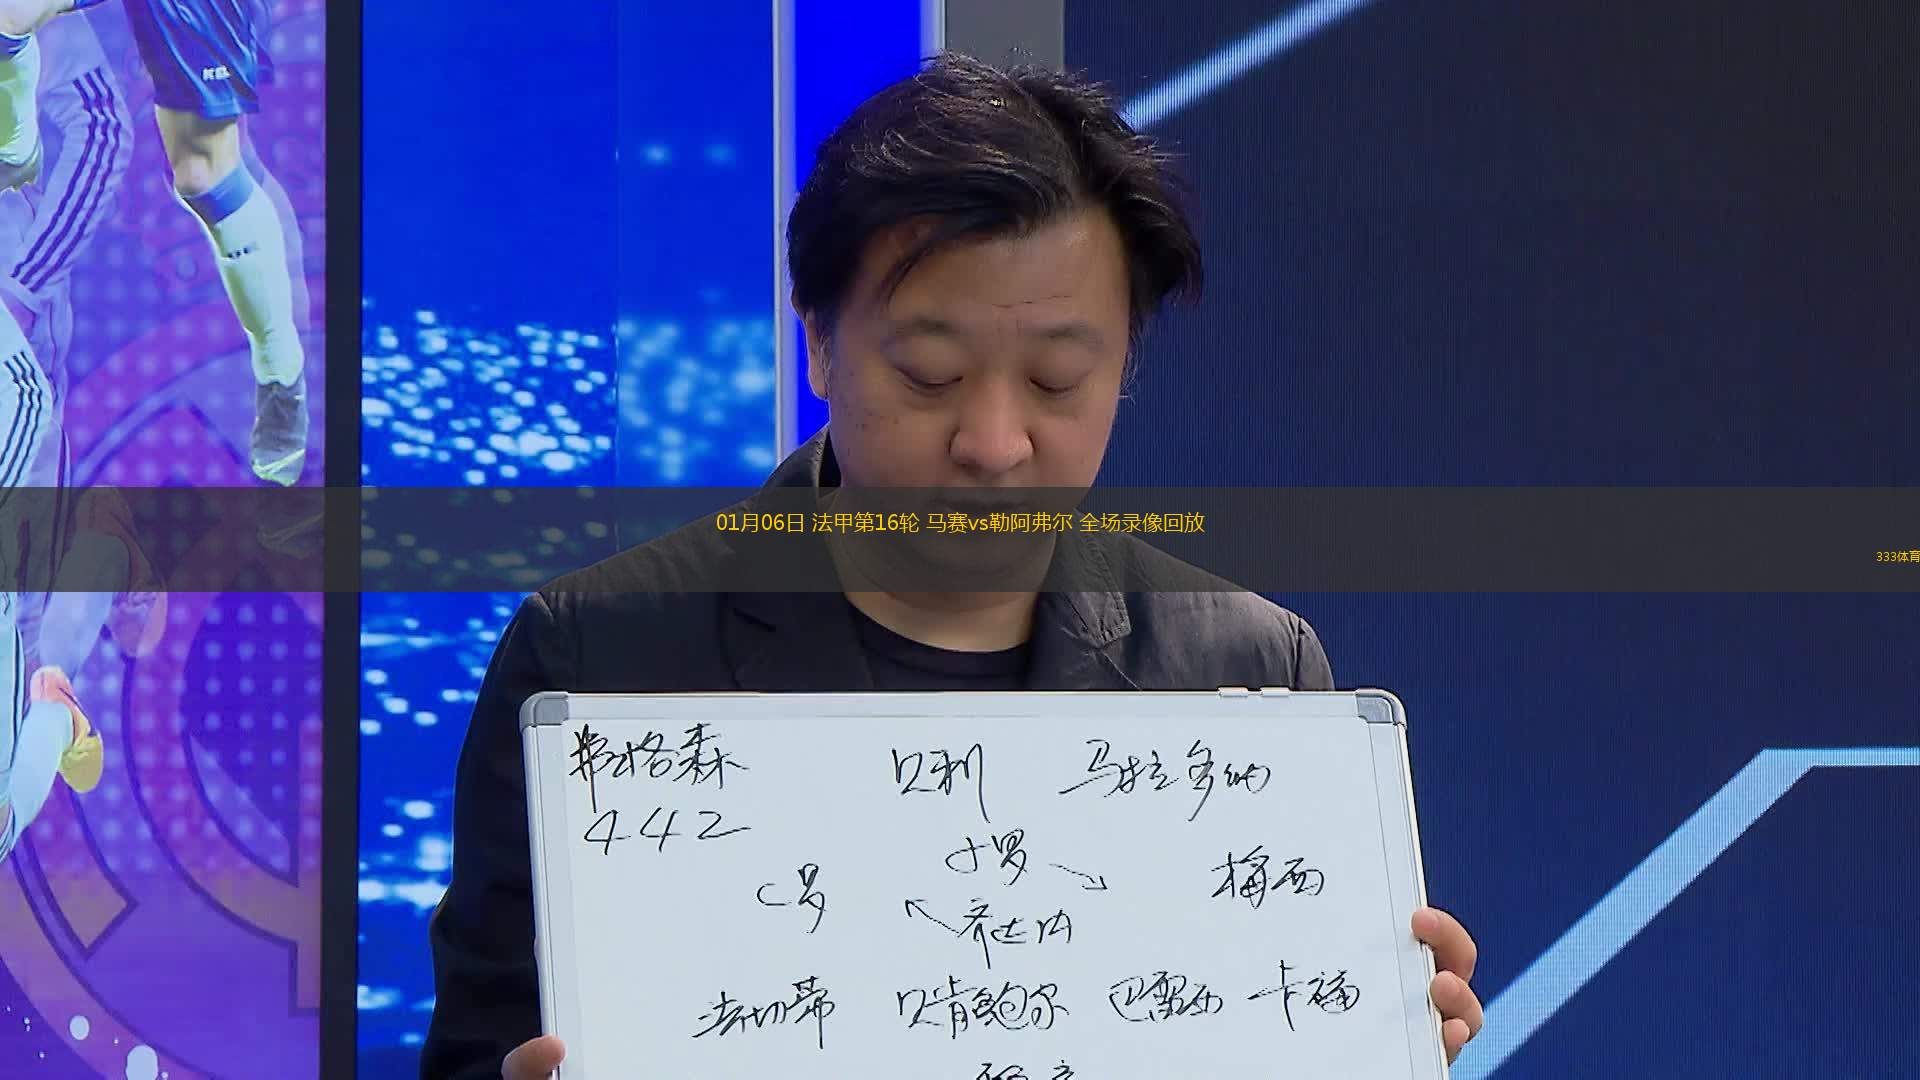 01月06日 法甲第16轮 马赛vs勒阿弗尔 全场录像回放
333体育
弗格森 贝利 马拉多纳
442
小罗
C罗 梅西
齐达内
法切蒂 贝肯鲍尔 巴雷西 卡福